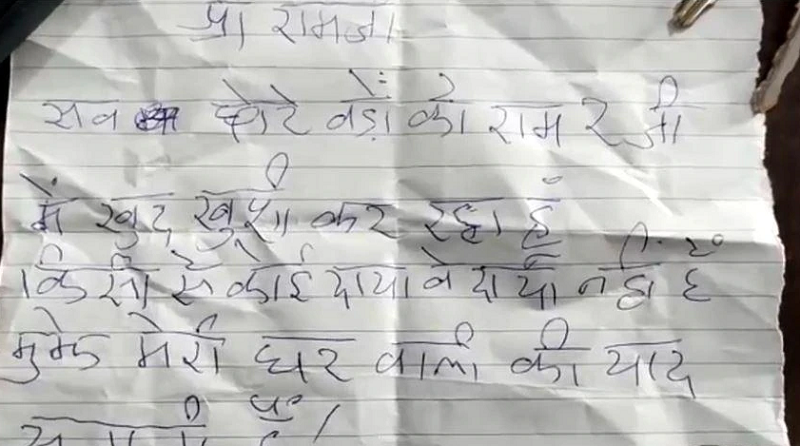 श्री रामजी
सब छोटे बड़ो को राम २ जी
मैं खुद खुशी कर रहा हूँ
किसी से कोई दाया वे दायाँ नहीं है
मुझे मेरी घर वाली की याद